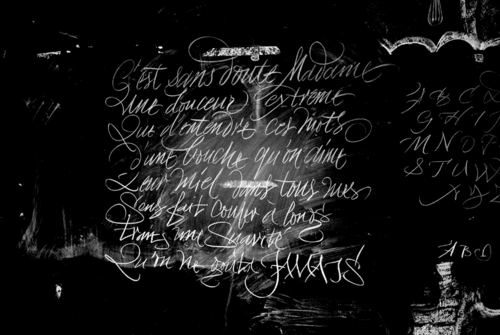 C'est sans doute Madame
Une douceur extrême
Que d'entendre ces mots
D'une bouche qu'on aime
Leur miel dans tous mes
Sens fait couler à longs
traits une suavité
Qu'on ne goûta JAMAIS
A B C D
G H I
M N O P
S T U W
A B C D